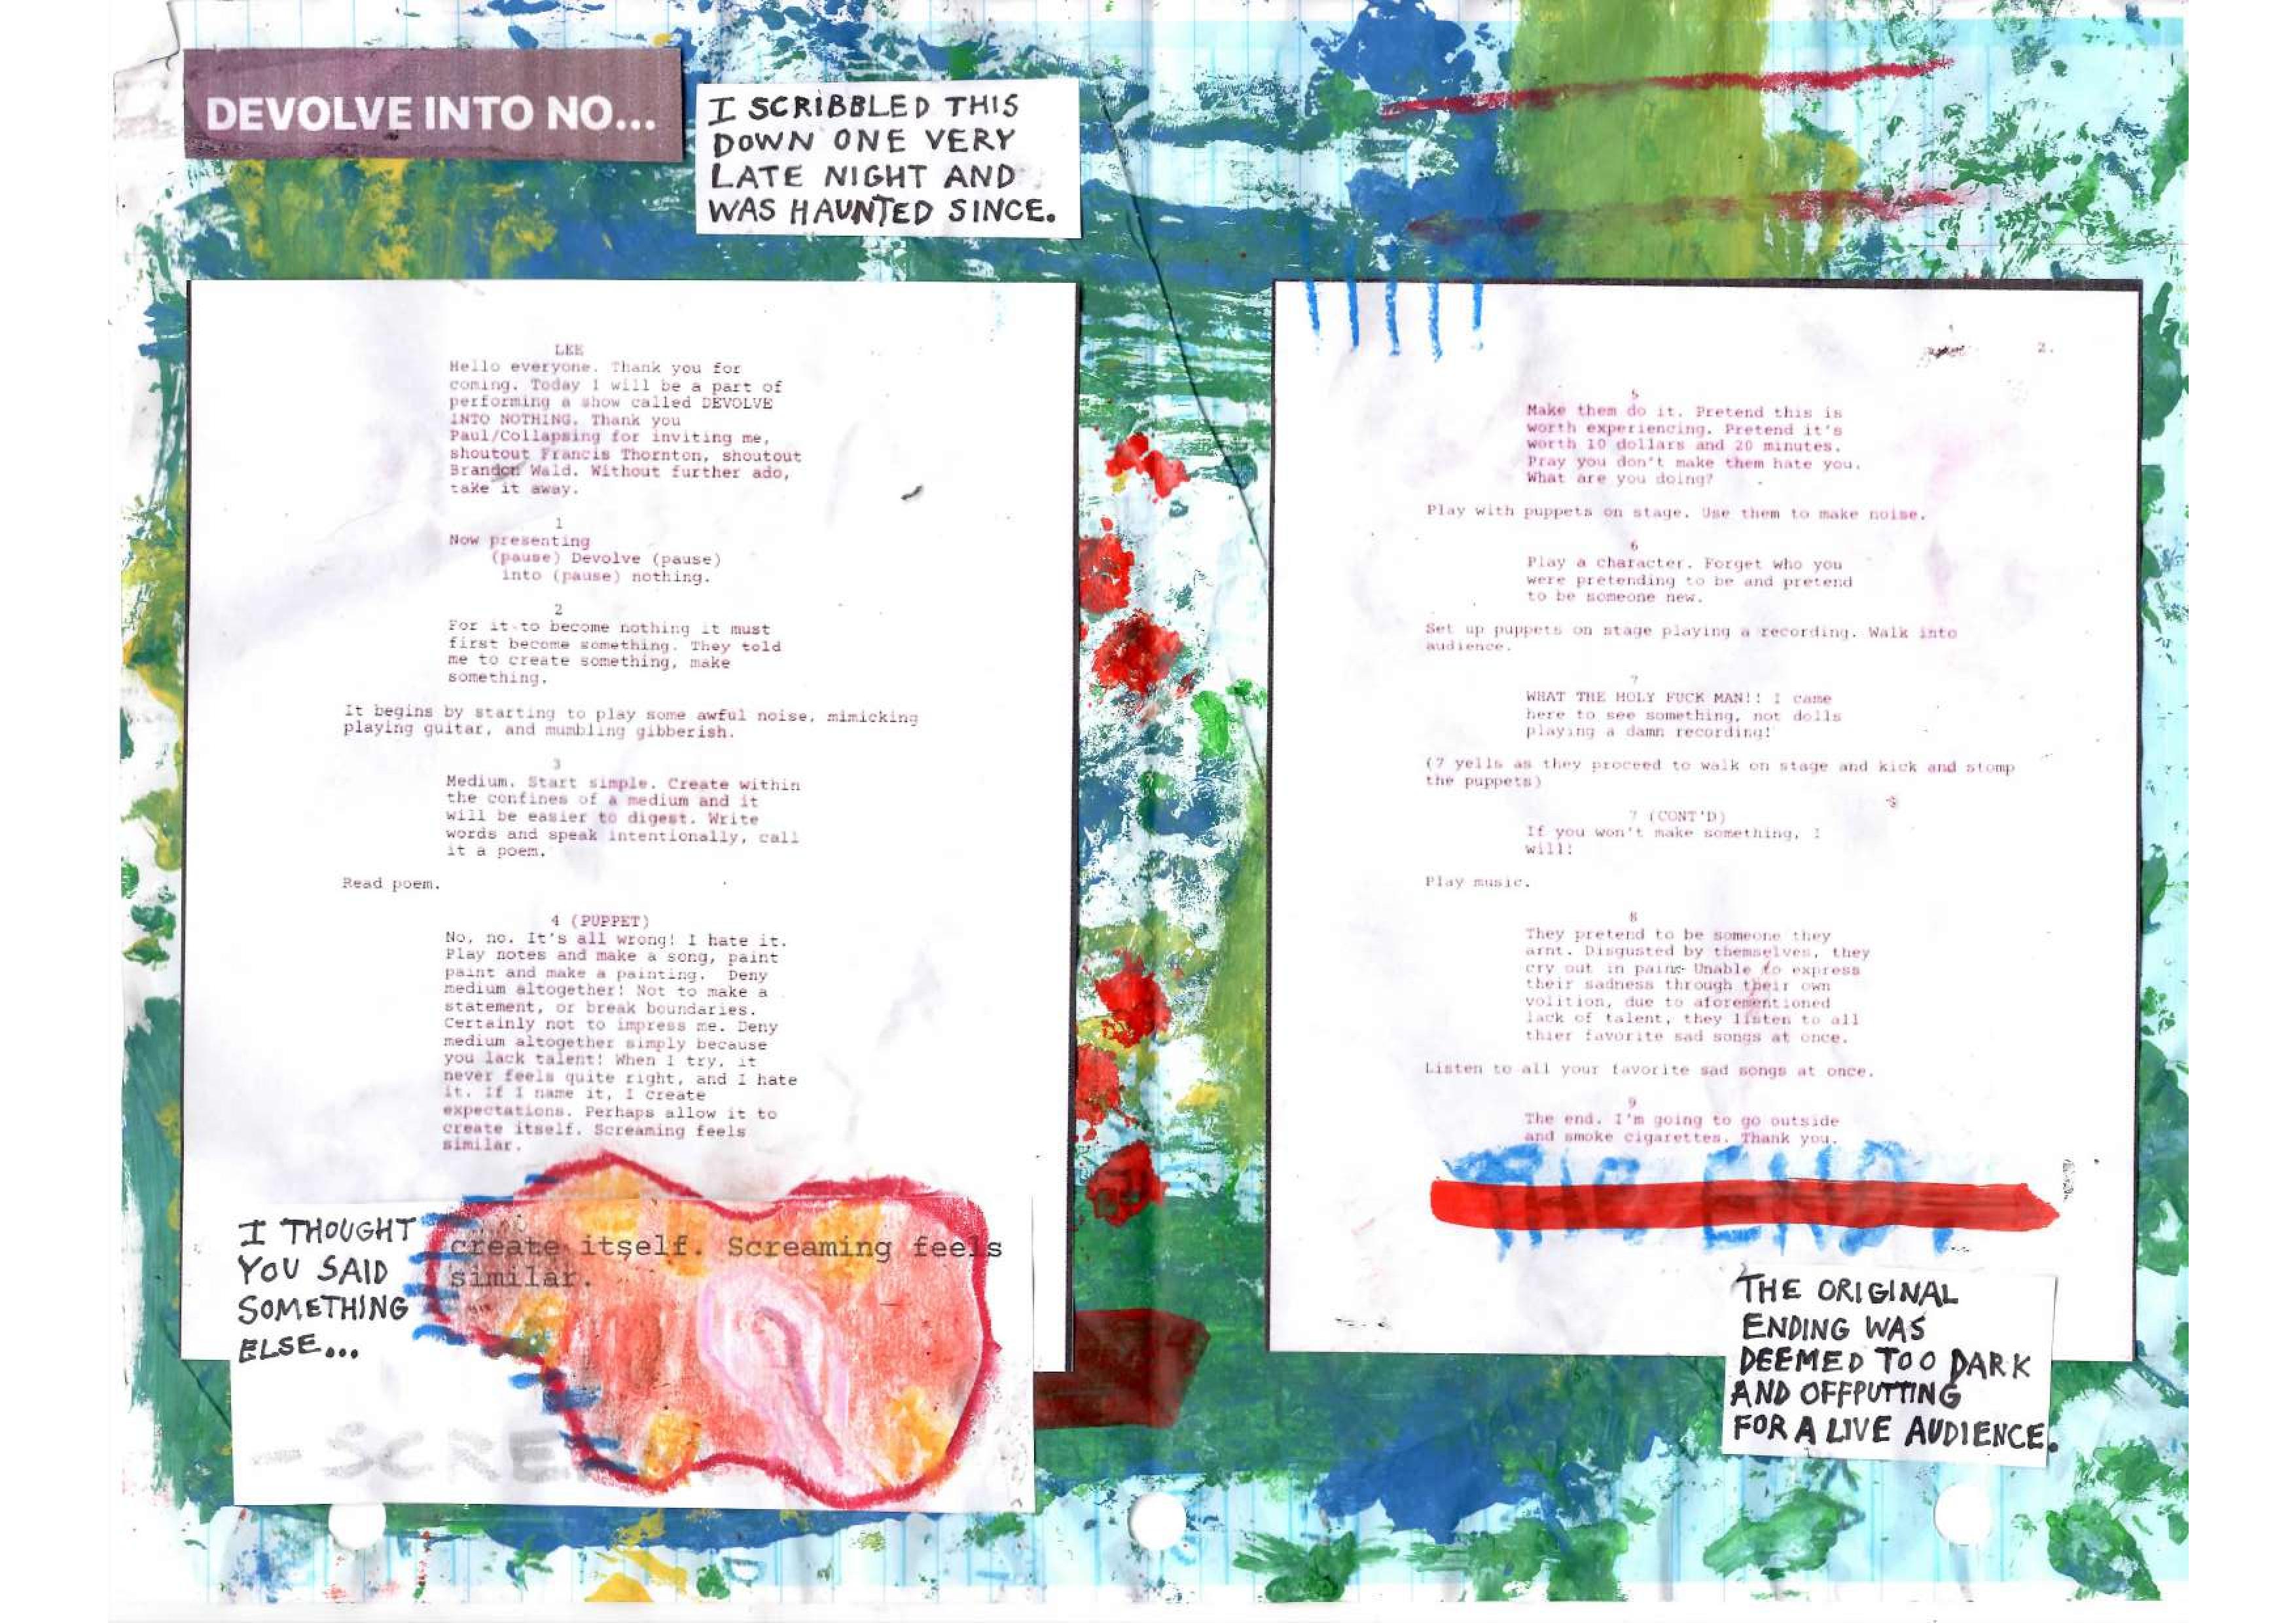 DEVOLVE INTO NO...
I SCRIBBLED THIS
DOWN ONE VERY
LATE NIGHT AND
WAS HAUNTED SINCE.
LEE
Hello everyone. Thank you for
coming. Today I will be a part of
performing a show called DEVOLVE
INTO NOTHING. Thank you
Paul/Collapsing for inviting me,
shoutout Francis Thornton, shoutout
Brandon Wald. Without further ado,
take it away.
1
Now presenting
(pause) Devolve (pause)
into (pause) nothing.
2
For it to become nothing it must
first become something. They told
me to create something, make
something.
It begins by starting to play some awful noise, mimicking
playing guitar, and mumbling gibberish.
3
Medium. Start simple. Create within
the confines of a medium and it
will be easier to digest. Write
words and speak intentionally, call
it a poem.
Read poem.
4 (PUPPET)
No, no. It's all wrong! I hate it.
Play notes and make a song, paint
paint and make a painting. Deny
medium altogether! Not to make a
statement, or break boundaries.
Certainly not to impress me. Deny
medium altogether simply because
you lack talent! When I try, it
never feels quite right, and I hate
it. If I name it, I create
expectations. Perhaps allow it to
create itself. Screaming feels
similar.
I THOUGHT
YOU SAID
SOMETHING
ELSE...
create itself. Screaming feels
similar.
- SCRE
2.
5
Make them do it. Pretend this is
worth experiencing. Pretend it's
worth 10 dollars and 20 minutes.
Pray you don't make them hate you.
What are you doing?
Play with puppets on stage. Use them to make noise.
6
Play a character. Forget who you
were pretending to be and pretend
to be someone new.
Set up puppets on stage playing a recording. Walk into
audience.
7
WHAT THE HOLY FUCK MAN!! I came
here to see something, not dolls
playing a damn recording!
(7 yells as they proceed to walk on stage and kick and stomp
the puppets)
7 (CONT'D)
If you won't make something, I
will!
Play music.
8
They pretend to be someone they
arnt. Disgusted by themselves, they
cry out in pain. Unable to express
their sadness through their own
volition, due to aforementioned
lack of talent, they listen to all
thier favorite sad songs at once.
Listen to all your favorite sad songs at once.
9
The end. I'm going to go outside
and smoke cigarettes. Thank you.
THE END.
THE ORIGINAL
ENDING WAS
DEEMED TOO DARK
AND OFFPUTTING
FOR A LIVE AUDIENCE.